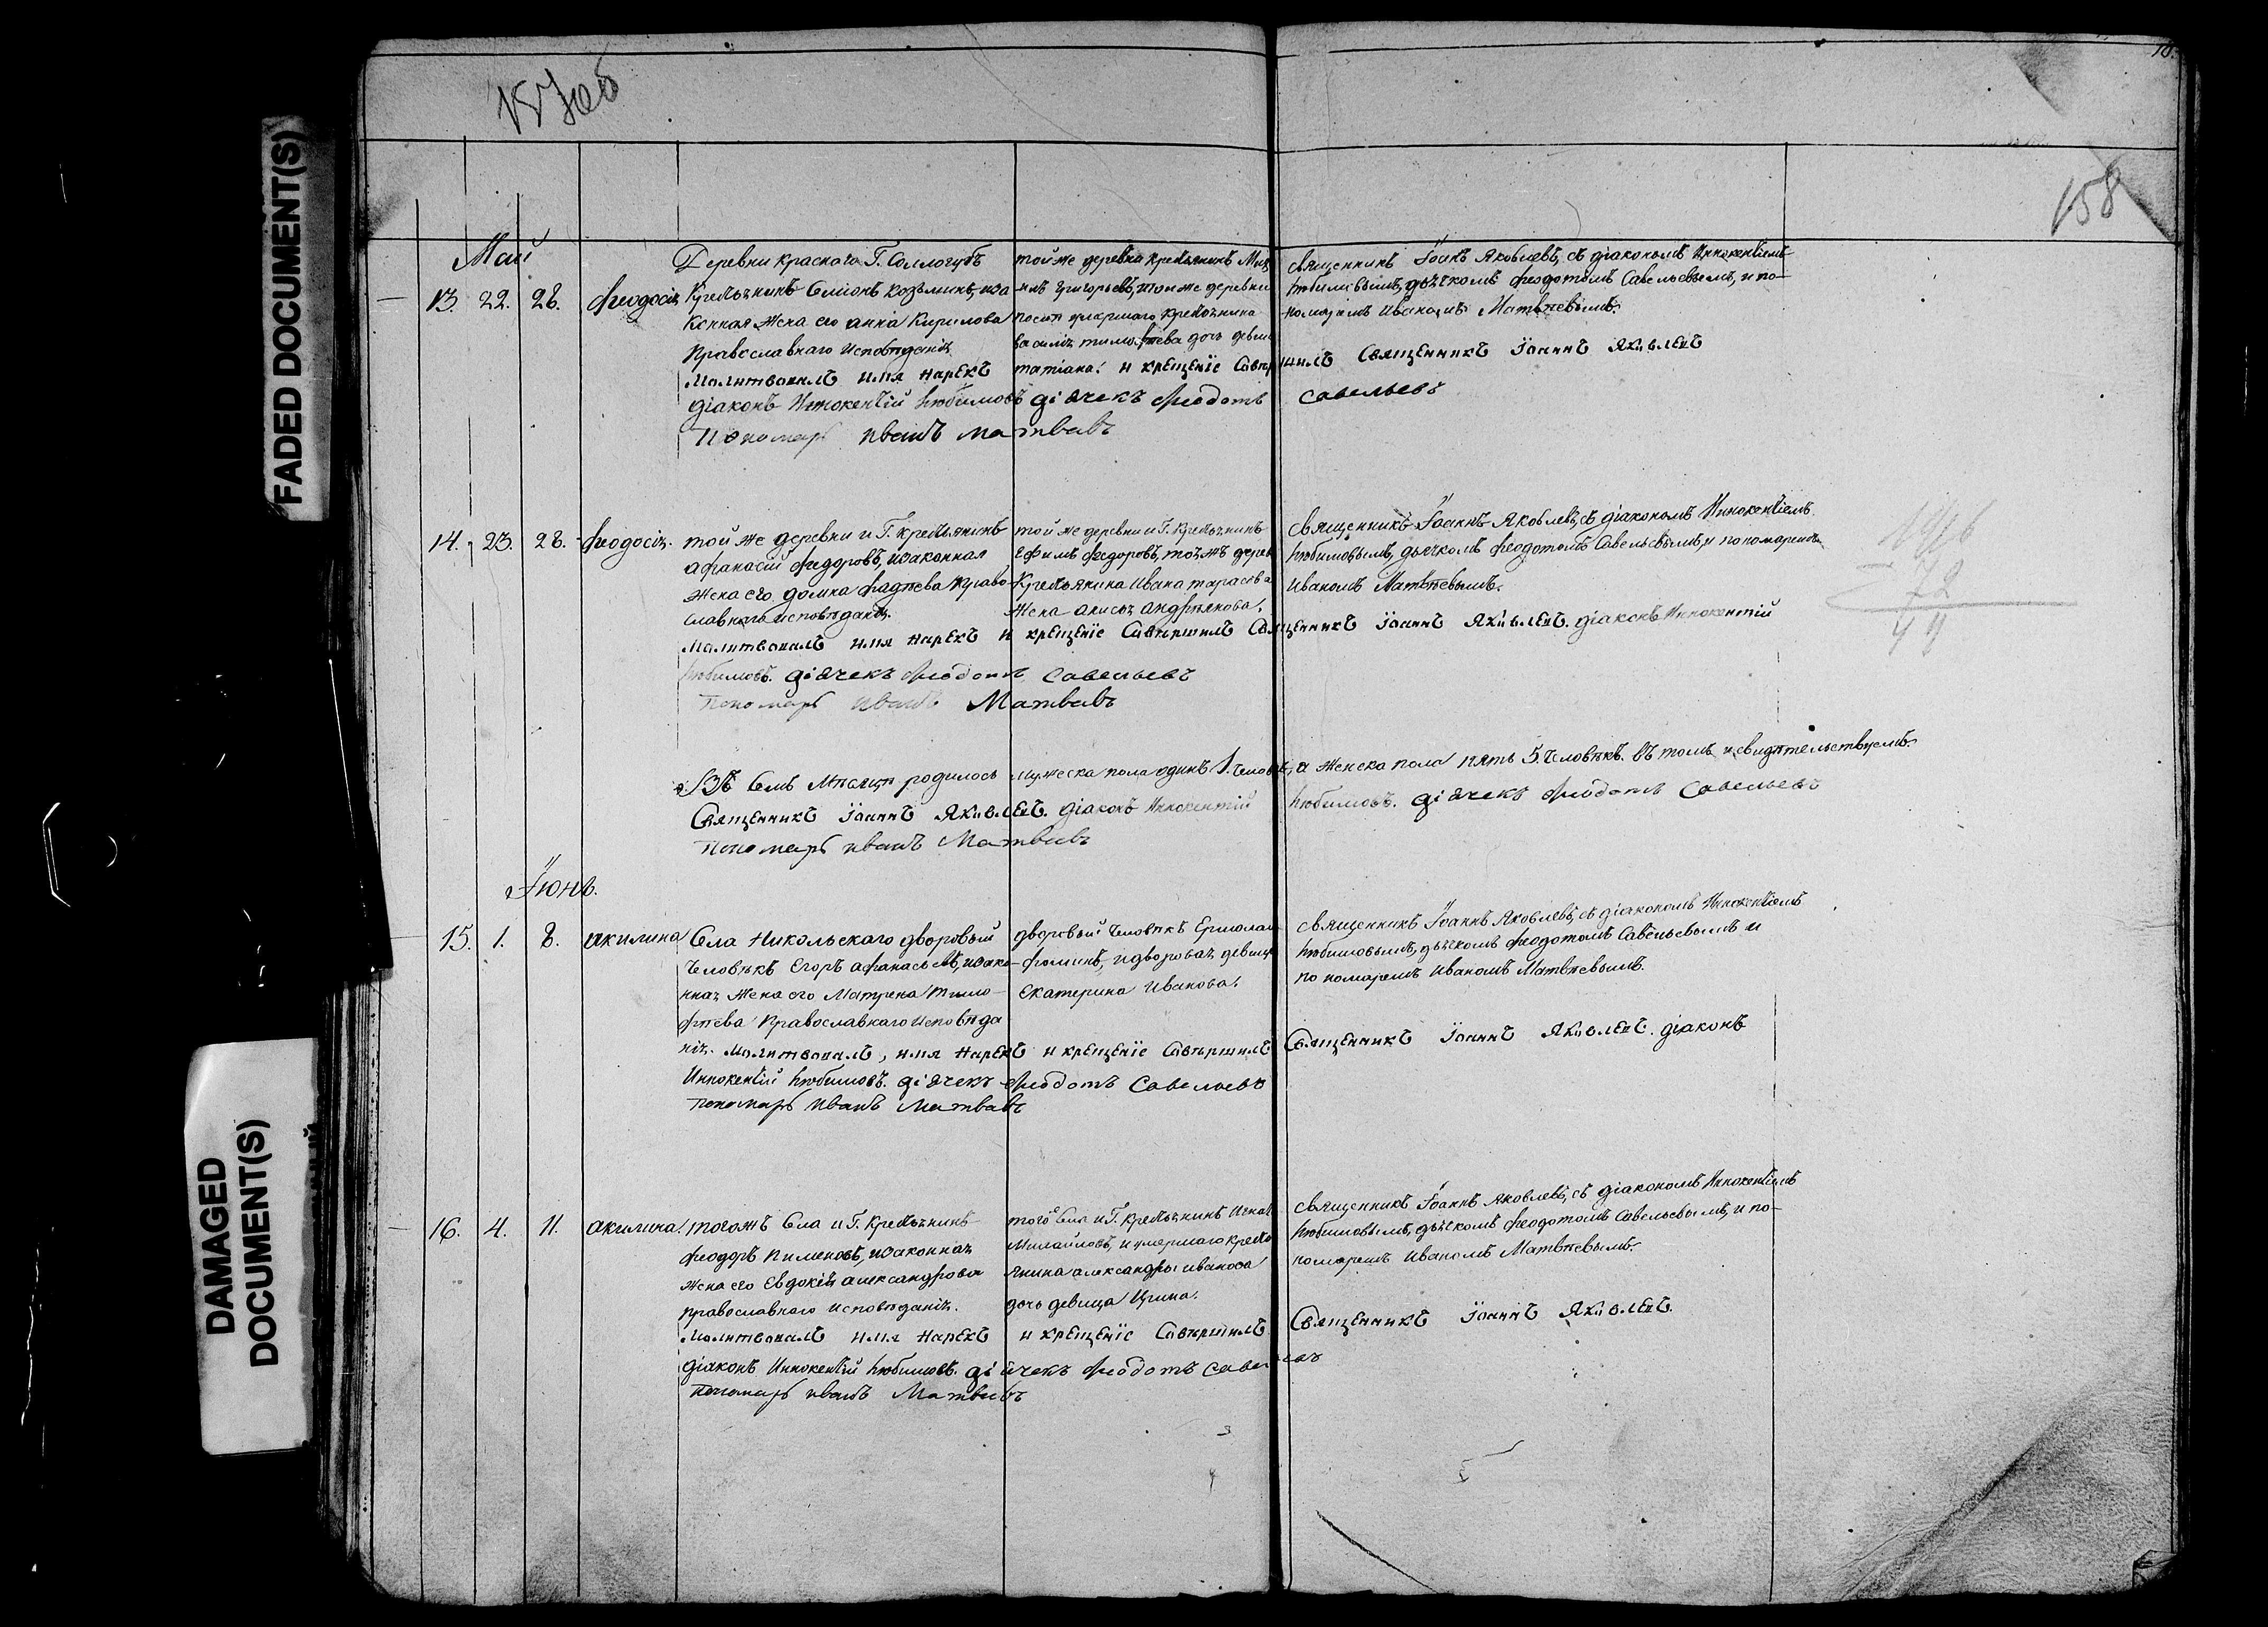 157 об
10.
158
FADED DOCUMENT(S)
DAMAGED
DOCUMENT(S)
Май
13. 22. 28. Феодосія
Деревни Краснаго Г. Соллогубъ
Крестьянинъ Симіонъ Козьминъ, иза
конная жена его анна Кирилова
Православнаго исповѣданія
той же деревни крестьянинъ
Григорьевъ, и той же деревни
умершаго крестьянина
дочь девица
татіана.
священникъ Іоанъ Яковлевъ, съ діакономъ Иннокентіемъ
Любимовымъ, дьячкомъ Феодотомъ Савельевымъ, и по-
номаремъ Иваномъ Матвѣевымъ.
Молитвовалъ имя нарекъ и крещеніе Савершилъ Священникъ Іоаннъ Яковлевъ
діаконъ Иннокентій Любимовъ діячекъ Феодотъ Савельевъ
Пономарь Иванъ Матвевъ
14. 23. 28. Феодосія.
той же деревни и Г. крестьянинъ
Афанасій Федоровъ, изаконная
жена его домна Фадѣева Право-
славнаго исповѣданія.
той же деревни и Г. Крестьянинъ
Ефимъ Федоровъ, тояжъ дерев
Крестьянина Ивана тарасова
жена анисья андреянова.
Священникъ Іоаннъ Яковлевъ, съ діакономъ Иннокентіемъ
Любимовымъ, дьячкомъ Феодотомъ Савельевымъ, и пономаремъ
Иваномъ Матвѣевымъ.
Молитвовалъ имя нарекъ и крещеніе Савершилъ Священникъ Іоаннъ Яковлевъ. діаконъ Иннокентій
Любимовъ. діячекъ Феодотъ Савельевъ
Пономарь Иванъ Матвевъ
72
Въ Семъ Мѣсяцѣ родилось мужеска пола одинъ 1. человѣкъ, а женска пола пять 5. человѣкъ. въ томъ и свидѣтельствуемъ.
Священникъ Іоаннъ Яковлевъ. діаконъ Иннокентій Любимовъ. діячекъ Феодотъ Савельевъ
Пономарь Иванъ Матвевъ
Іюнь.
15. 1. 8. акилина
Села Никольскаго дворовый
человѣкъ Егоръ афанасьевъ, изако-
нная жена его Матрена Тимо-
фѣева Православнаго Исповѣда
нія.
дворовый человѣкъ Ермолай
Фоминъ, и дворовая девица
Екатерина Иванова.
священникъ Іоаннъ Яковлевъ, съ діакономъ Иннокентіемъ
Любимовымъ, дьячкомъ Феодотомъ Савельевымъ и
пономаремъ Иваномъ Матвѣевымъ.
Молитвовалъ, имя нарекъ и крещеніе Савершилъ Священникъ Іоаннъ Яковлевъ. діаконъ
Иннокентій Любимовъ. діячекъ Феодотъ Савельевъ
Пономарь Иванъ Матвевъ
16. 4. 11. акилина.
тогожъ Села и Г. Крестьянинъ
Феодоръ Пименовъ, изаконная
жена его Евдокія александрова
православнаго исповѣданія.
того Села и Г. крестьянинъ Игнат
Михайловъ, и умершаго кресть
янина александры иванова
дочь девица Ирина.
священникъ Іоаннъ Яковлевъ, съ діакономъ Иннокентіемъ
Любимовымъ, дьячкомъ Феодотомъ Савельевымъ, и по-
номаремъ Иваномъ Матвѣевымъ.
Молитвовалъ имя нарекъ и крещеніе Савершилъ Священникъ Іоаннъ Яковлевъ.
діаконъ Иннокентій Любимовъ. діячекъ Феодотъ Савельевъ
Пономарь Иванъ Матвевъ